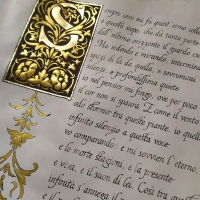 S
empre caro mi fu quest'ermo colle
e questa siepe, che da tanta parte
dell'ultimo orizzonte il guardo
Ma sedendo e mirando, interminati
spazi di là da quella, e sovrumani
silenzi, e profondissima quiete
io nel pensier mi fingo, ove per poco
il cor non si spaura. E come il vento
odo stormir tra queste piante, io quello
infinito silenzio a questa voce
vo comparando: e mi sovvien l'eterno,
e le morte stagioni, e la presente
e viva, e il suon di lei. Così tra questa
infinità s'annega il